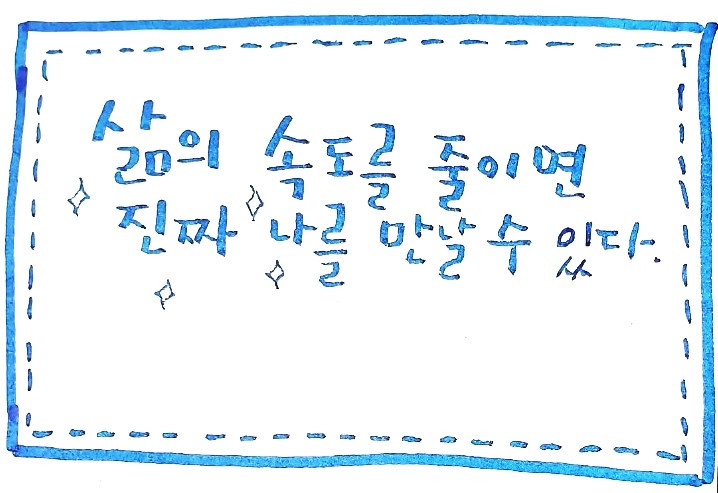 삶의 속도를 줄이면
진짜 나를 만날 수 있다.